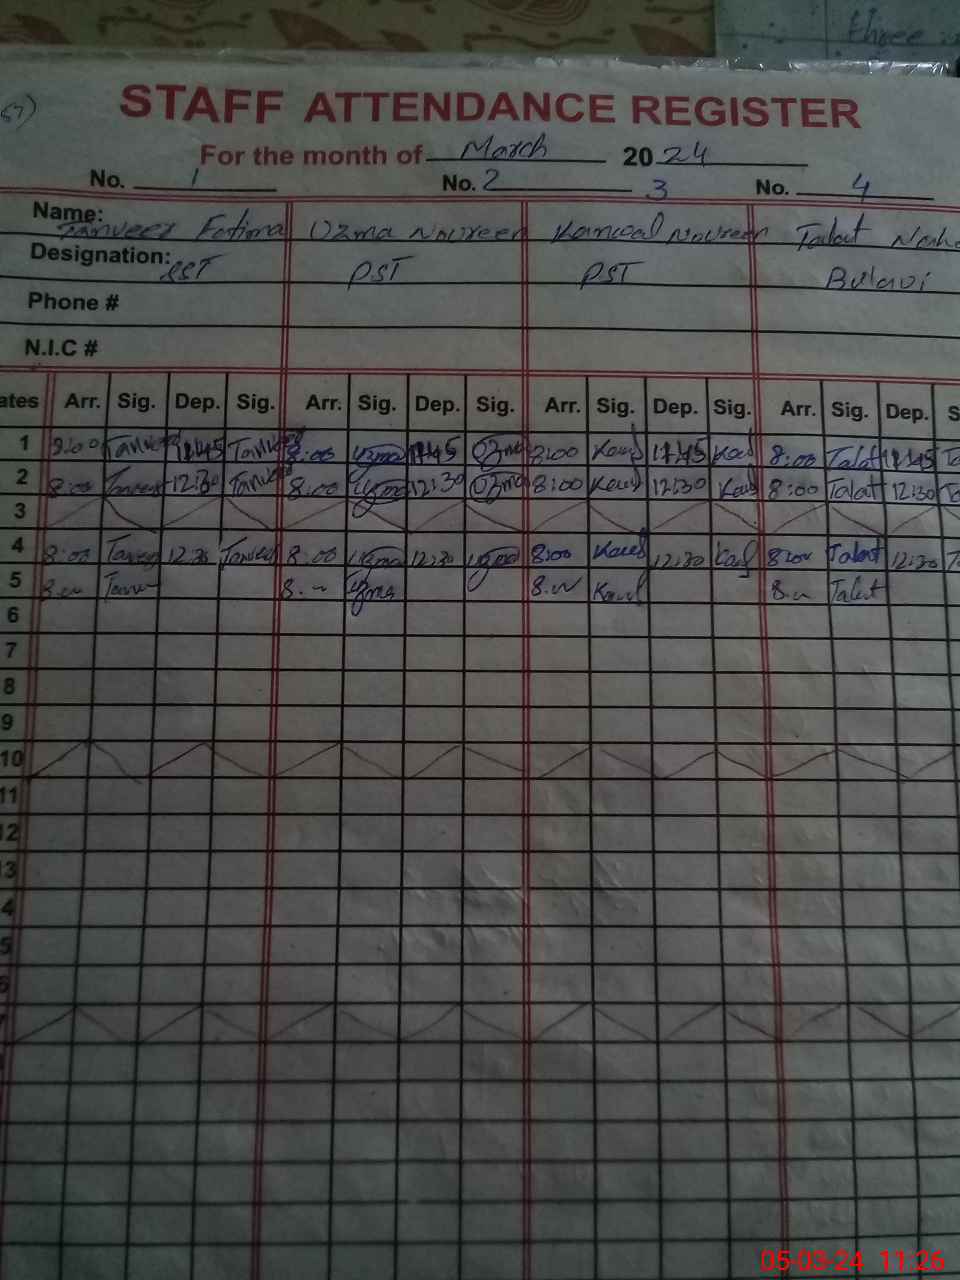 three
57)
STAFF ATTENDANCE REGISTER
For the month of March 2024
No. 1 No. 2 3 No. 4
Name: Tanveer Fatima Uzma Noureen Kanwal Noureen Talat
Designation: PST PST
Phone #
N.I.C #
ates Arr. Sig. Dep. Sig. Arr. Sig. Dep. Sig. Arr. Sig. Dep. Sig. Arr. Sig. Dep. S
1 8:00 Tanveer 11:45 Tanveer 8:00 Uzma 11:45 Uzma 8:00 11:45 8:00 Talat 11:45
2 8:00 Tanveer 12:30 Tanveer 8:00 Uzma 12:30 Uzma 8:00 12:30 8:00 Talat 12:30
3
4 8:00 12:30 Tanveer 8:00 Uzma 12:30 Uzma 8:00 12:30 8:00 Talat 12:30
5 Uzma Talat
6
7
8
9
10
11
12
3
4
5
6
7
05-03-24 11:26